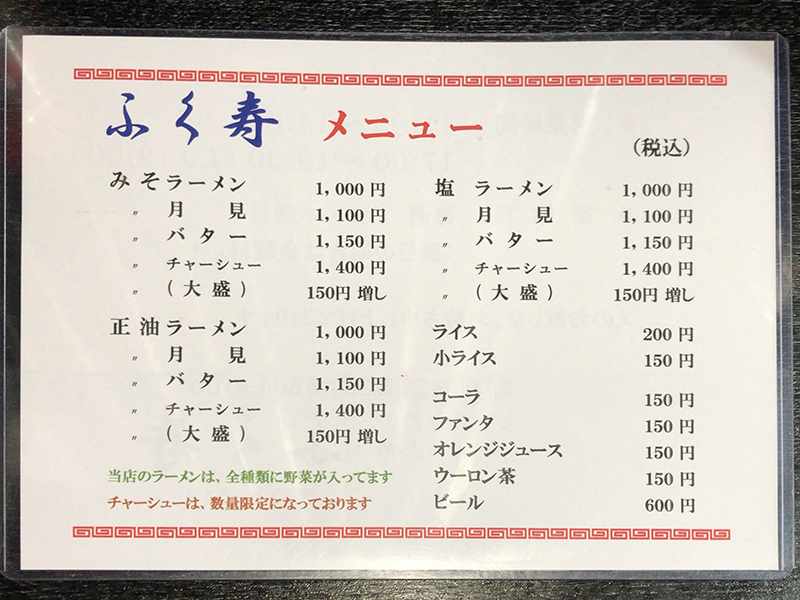 ふく寿 メニュー
(税込)
みそラーメン 1,000 円
〃 月見 1,100 円
〃 バター 1,150 円
〃 チャーシュー 1,400 円
〃 (大盛) 150円 増し
正油ラーメン 1,000 円
〃 月見 1,100 円
〃 バター 1,150 円
〃 チャーシュー 1,400 円
〃 (大盛) 150円 増し
当店のラーメンは、全種類に野菜が入ってます
チャーシューは、数量限定になっております
塩 ラーメン 1,000 円
〃 月見 1,100 円
〃 バター 1,150 円
〃 チャーシュー 1,400 円
〃 (大盛) 150円 増し
ライス 200 円
小ライス 150 円
コーラ 150 円
ファンタ 150 円
オレンジジュース 150 円
ウーロン茶 150 円
ビール 600 円